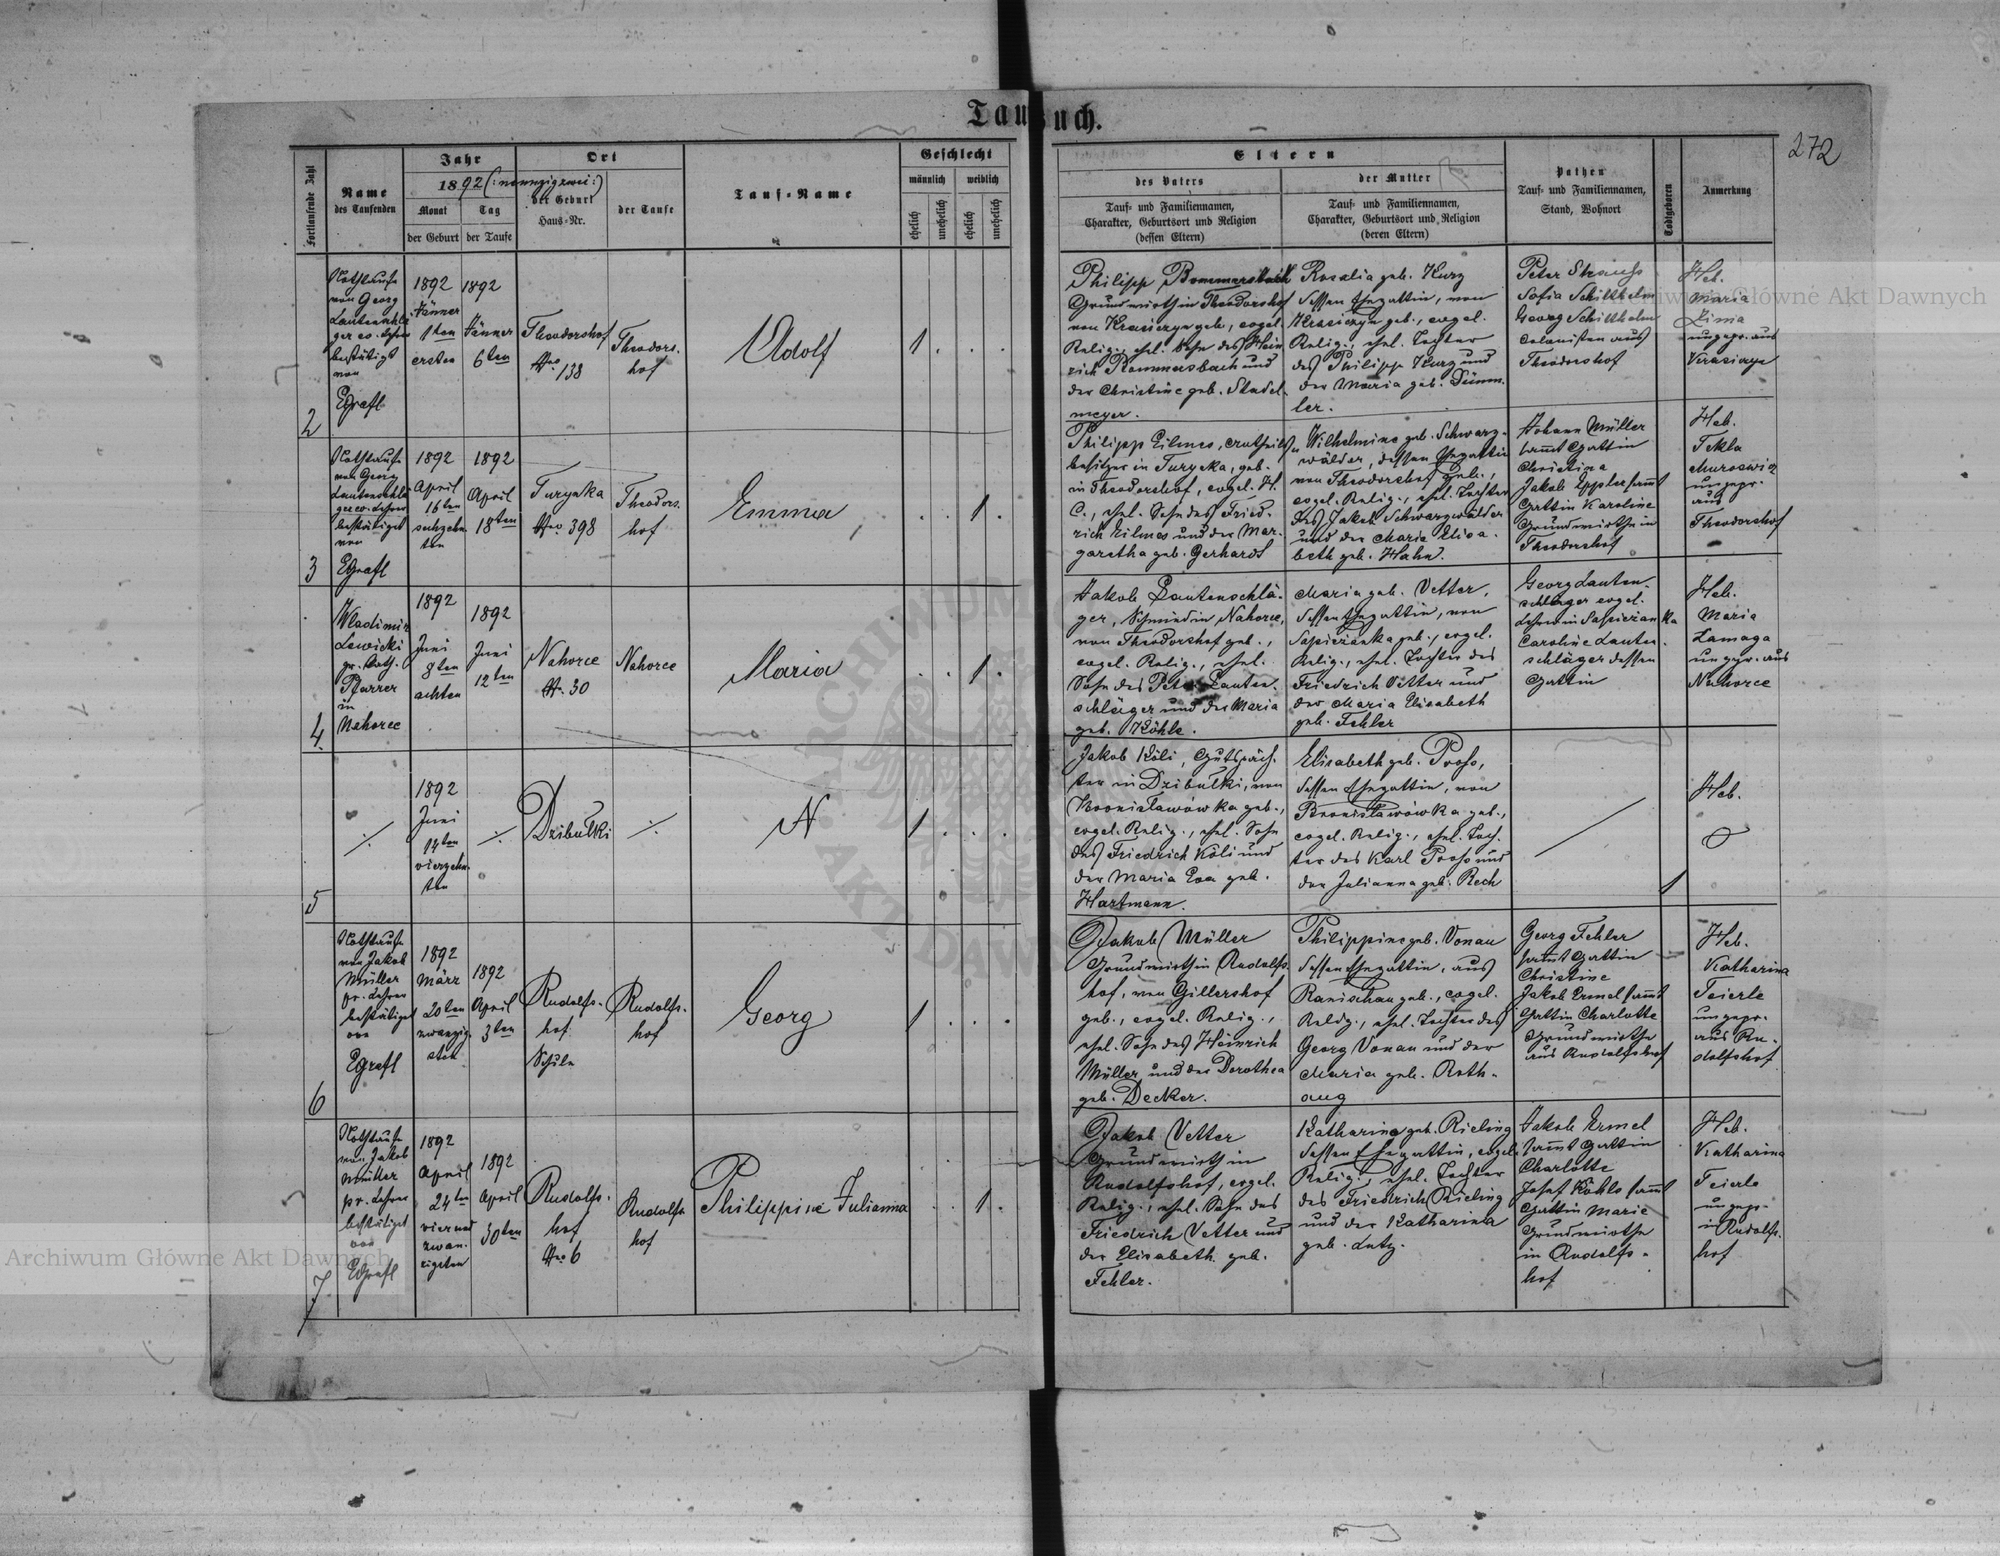 Taufbuch.
272
Fortlaufende Zahl
Name
des Taufenden
Jahr
1892 (: neunzigzwei :)
Monat
der Geburt
Tag
der Taufe
Ort
der Geburt
Haus-Nr.
der Taufe
Tauf-Name
Geschlecht
männlich
weiblich
ehelich
unehelich
ehelich
unehelich
Eltern
des Vaters
Tauf- und Familiennamen,
Charakter, Geburtsort und Religion
(dessen Eltern)
der Mutter
Tauf- und Familiennamen,
Charakter, Geburtsort und Religion
(deren Eltern)
Pathen
Tauf- und Familiennamen,
Stand, Wohnort
Todtgeboren
Anmerkung
2
Nothtaufe
von Georg
Lautenschlä
ger ev. Lehrer
bestätigt
von
Egrafl
1892
Jänner
1ten
ersten
1892
Jänner
6ten
Theodorshof
Nro 138
Theodors-
hof
Adolf
1
Philipp Rommersbach
Grundwirth in Theodorshof
von Krasiczyn geb., evgel.
Relig., ehel. Sohn des Hein
rich Rommersbach und
der Christine geb. Stadel-
meyer.
Rosalia geb. Kurz
dessen Ehegattin, von
Krasiczyn geb., evgel.
Relig., ehel. Tochter
des Philipp Kurz und
der Maria geb. Dümm-
ler.
Peter Strauss
Sofia Schilthelm
Georg Schilthelm
Colonisten aus
Theodorshof
Heb.
Maria
ungepr. aus
3
Nothtaufe
von Georg
Lautenschlä
ger ev. Lehrer
bestätiget
von
Egrafl
1892
April
16ten
sechzehn
ten
1892
April
18ten
Turynka
Nro 398
Theodors-
hof
Emma
1
Philipp Eilmes, Antheils
besitzer in Turynka, geb.
in Theodorshof, evgel. H.
C., ehel. Sohn des Fried-
rich Eilmes und der Mar-
garetha geb. Gerhardt
Wilhelmine geb. Schwarz-
wälder, dessen Ehegattin
von Theodorshof geb.,
evgel. Relig., ehel. Tochter
des Jakob Schwarzwälder
und der Maria Elisa-
beth geb. Hahn.
Johann Müller
samt Gattin
Christina
Jakob Eppler samt
Gattin Karoline
Grundwirthe in
Theodorshof
Heb.
Tekla
ungepr.
aus
Theodorshof
4
Wladimir
Lewicki
gr. kath.
Pfarrer
in
Nahorce
1892
Juni
8ten
achten
1892
Juni
12ten
Nahorce
Nr. 30
Nahorce
Maria
1
Jakob Lautenschlä-
ger, Schmied in Nahorce,
von Theodorshof geb.,
evgel. Relig., ehel.
Sohn des Peter Lauten-
schläger und der Maria
geb. Köhle.
Maria geb. Vetter,
dessen Ehegattin, von
Sapieżanka geb., evgel.
Relig., ehel. Tochter des
Friedrich Vetter und
der Maria Elisabeth
geb. Fehler
Georg Lauten-
schläger evgel.
Lehrer in Sapieżanka
Caroline Lauten-
schläger dessen
Gattin
Heb.
Maria
Lamaga
ungepr. aus
Nahorce
5
./.
1892
Juni
14ten
vierzehn-
ten
./.
Dzibułki
./.
N
1
Jakob Köli, Gutspäch-
ter in Dzibułki, von
Bronisławówka geb.,
evgel. Relig., ehel. Sohn
des Friedrich Köli und
der Maria Eva geb.
Hartmann.
Elisabeth geb. Pross,
dessen Ehegattin, von
Bronisławówka geb.,
evgel. Relig., ehel. Toch-
ter des Karl Pross und
der Julianna geb. Rech
1
Heb.
6
Nothtaufe
von Jakob
Müller
pr. Lehrer
bestätiget
von
Egrafl
1892
März
20ten
zwanzig-
sten
1892
April
3ten
Rudolfs-
hof
Schule
Rudolfs-
hof
Georg
1
Jakob Müller
Grundwirth in Rudolfs-
hof, von Gillershof
geb., evgel. Relig.,
ehel. Sohn des Heinrich
Müller und der Dorothea
geb. Decker.
Philippine geb. Vonau
dessen Ehegattin, aus
Ranischau geb., evgel.
Relig., ehel. Tochter des
Georg Vonau und der
Maria geb. Roth-
aug
Georg Fehler
samt Gattin
Christine
Jakob Ermel samt
Gattin Charlotte
Grundwirthe
aus Rudolfshof
Heb.
Katharina
Feierle
ungepr.
aus Ru-
dolfshof
7
Nothtaufe
von Jakob
Müller
pr. Lehrer
bestätiget
von
Egrafl
1892
April
24ten
vierund
zwan-
zigsten
1892
April
30ten
Rudolfs-
hof
Nro 6
Rudolfs
hof
Philippine Julianna
1
Jakob Vetter
Grundwirth in
Rudolfshof, evgel.
Relig., ehel. Sohn des
Friedrich Vetter und
der Elisabeth geb.
Fehler.
Katharina geb. Rieling
dessen Ehegattin, evgel.
Relig., ehel. Tochter
des Friedrich Rieling
und der Katharina
geb. Lutz.
Jakob Ermel
samt Gattin
Charlotte
Josef Köhle samt
Gattin Marie
Grundwirthe
in Rudolfs-
hof
Heb.
Katharina
Feierle
ungepr.
in Rudolfs-
hof
Archiwum Główne Akt Dawnych
Archiwum Główne Akt Dawnych